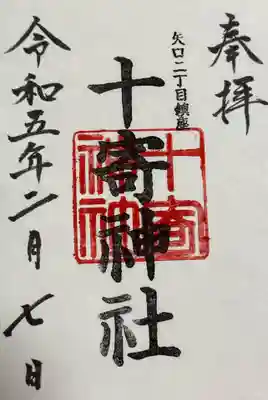 奉拝
矢口二丁目鎮座
十寄神社
十寄
神社
令和五年二月七日